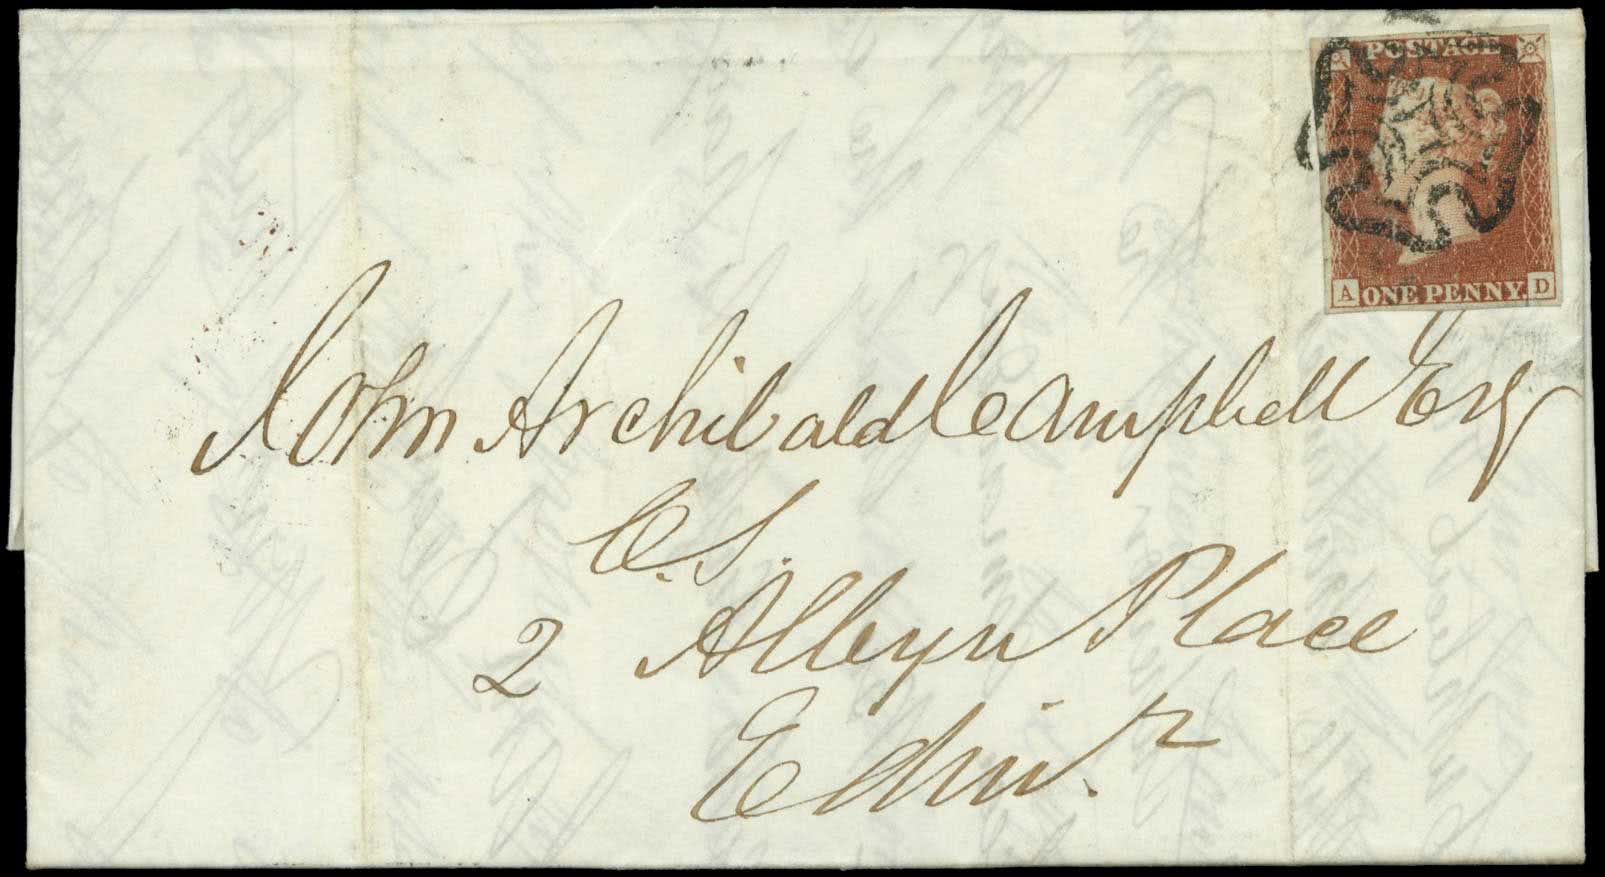 POSTAGE
A ONE PENNY. D
John Archibald Campbell Esq
C.S.
2 Albyn Place
Edinr.